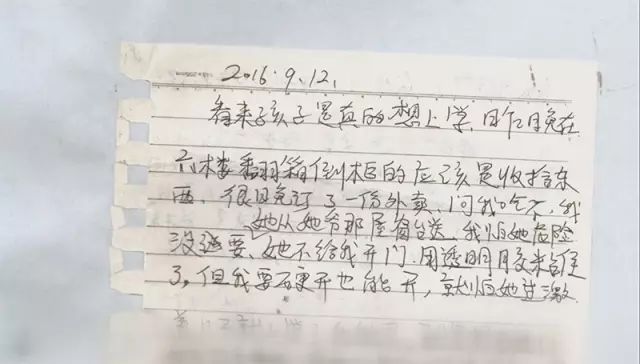 2016.9.12.
看来孩子是真的想上学，昨晚在
六楼翻箱倒柜的应该是收拾东
西，很晚订了一份外卖，问我吃不，我
她从她爷那屋窗台送，我怕她危险
没送要，她不给我开门，用透明胶粘住
了，但我要硬开也能开，就怕她过激